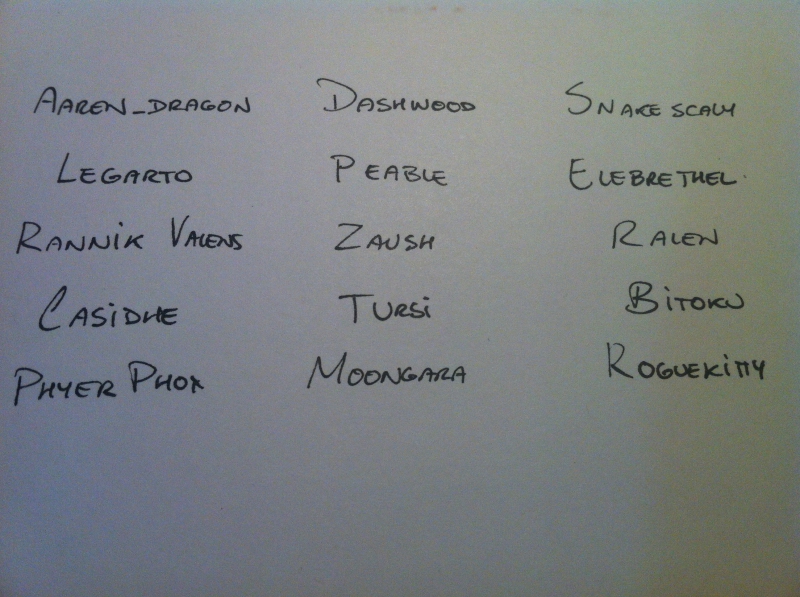 Aaren_dragon Dashwood Snakescaly
Legarto Peable Elebrethel.
Rannik Valens Zaush Ralen
Casidhe Tursi Bitoku
Phyer Phox Moongara Roguekitty